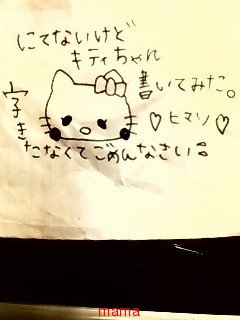 にてないけど
キティちゃん
書いてみた。
♡ヒマソ♡
字き
たなくてごめんなさい。
mama